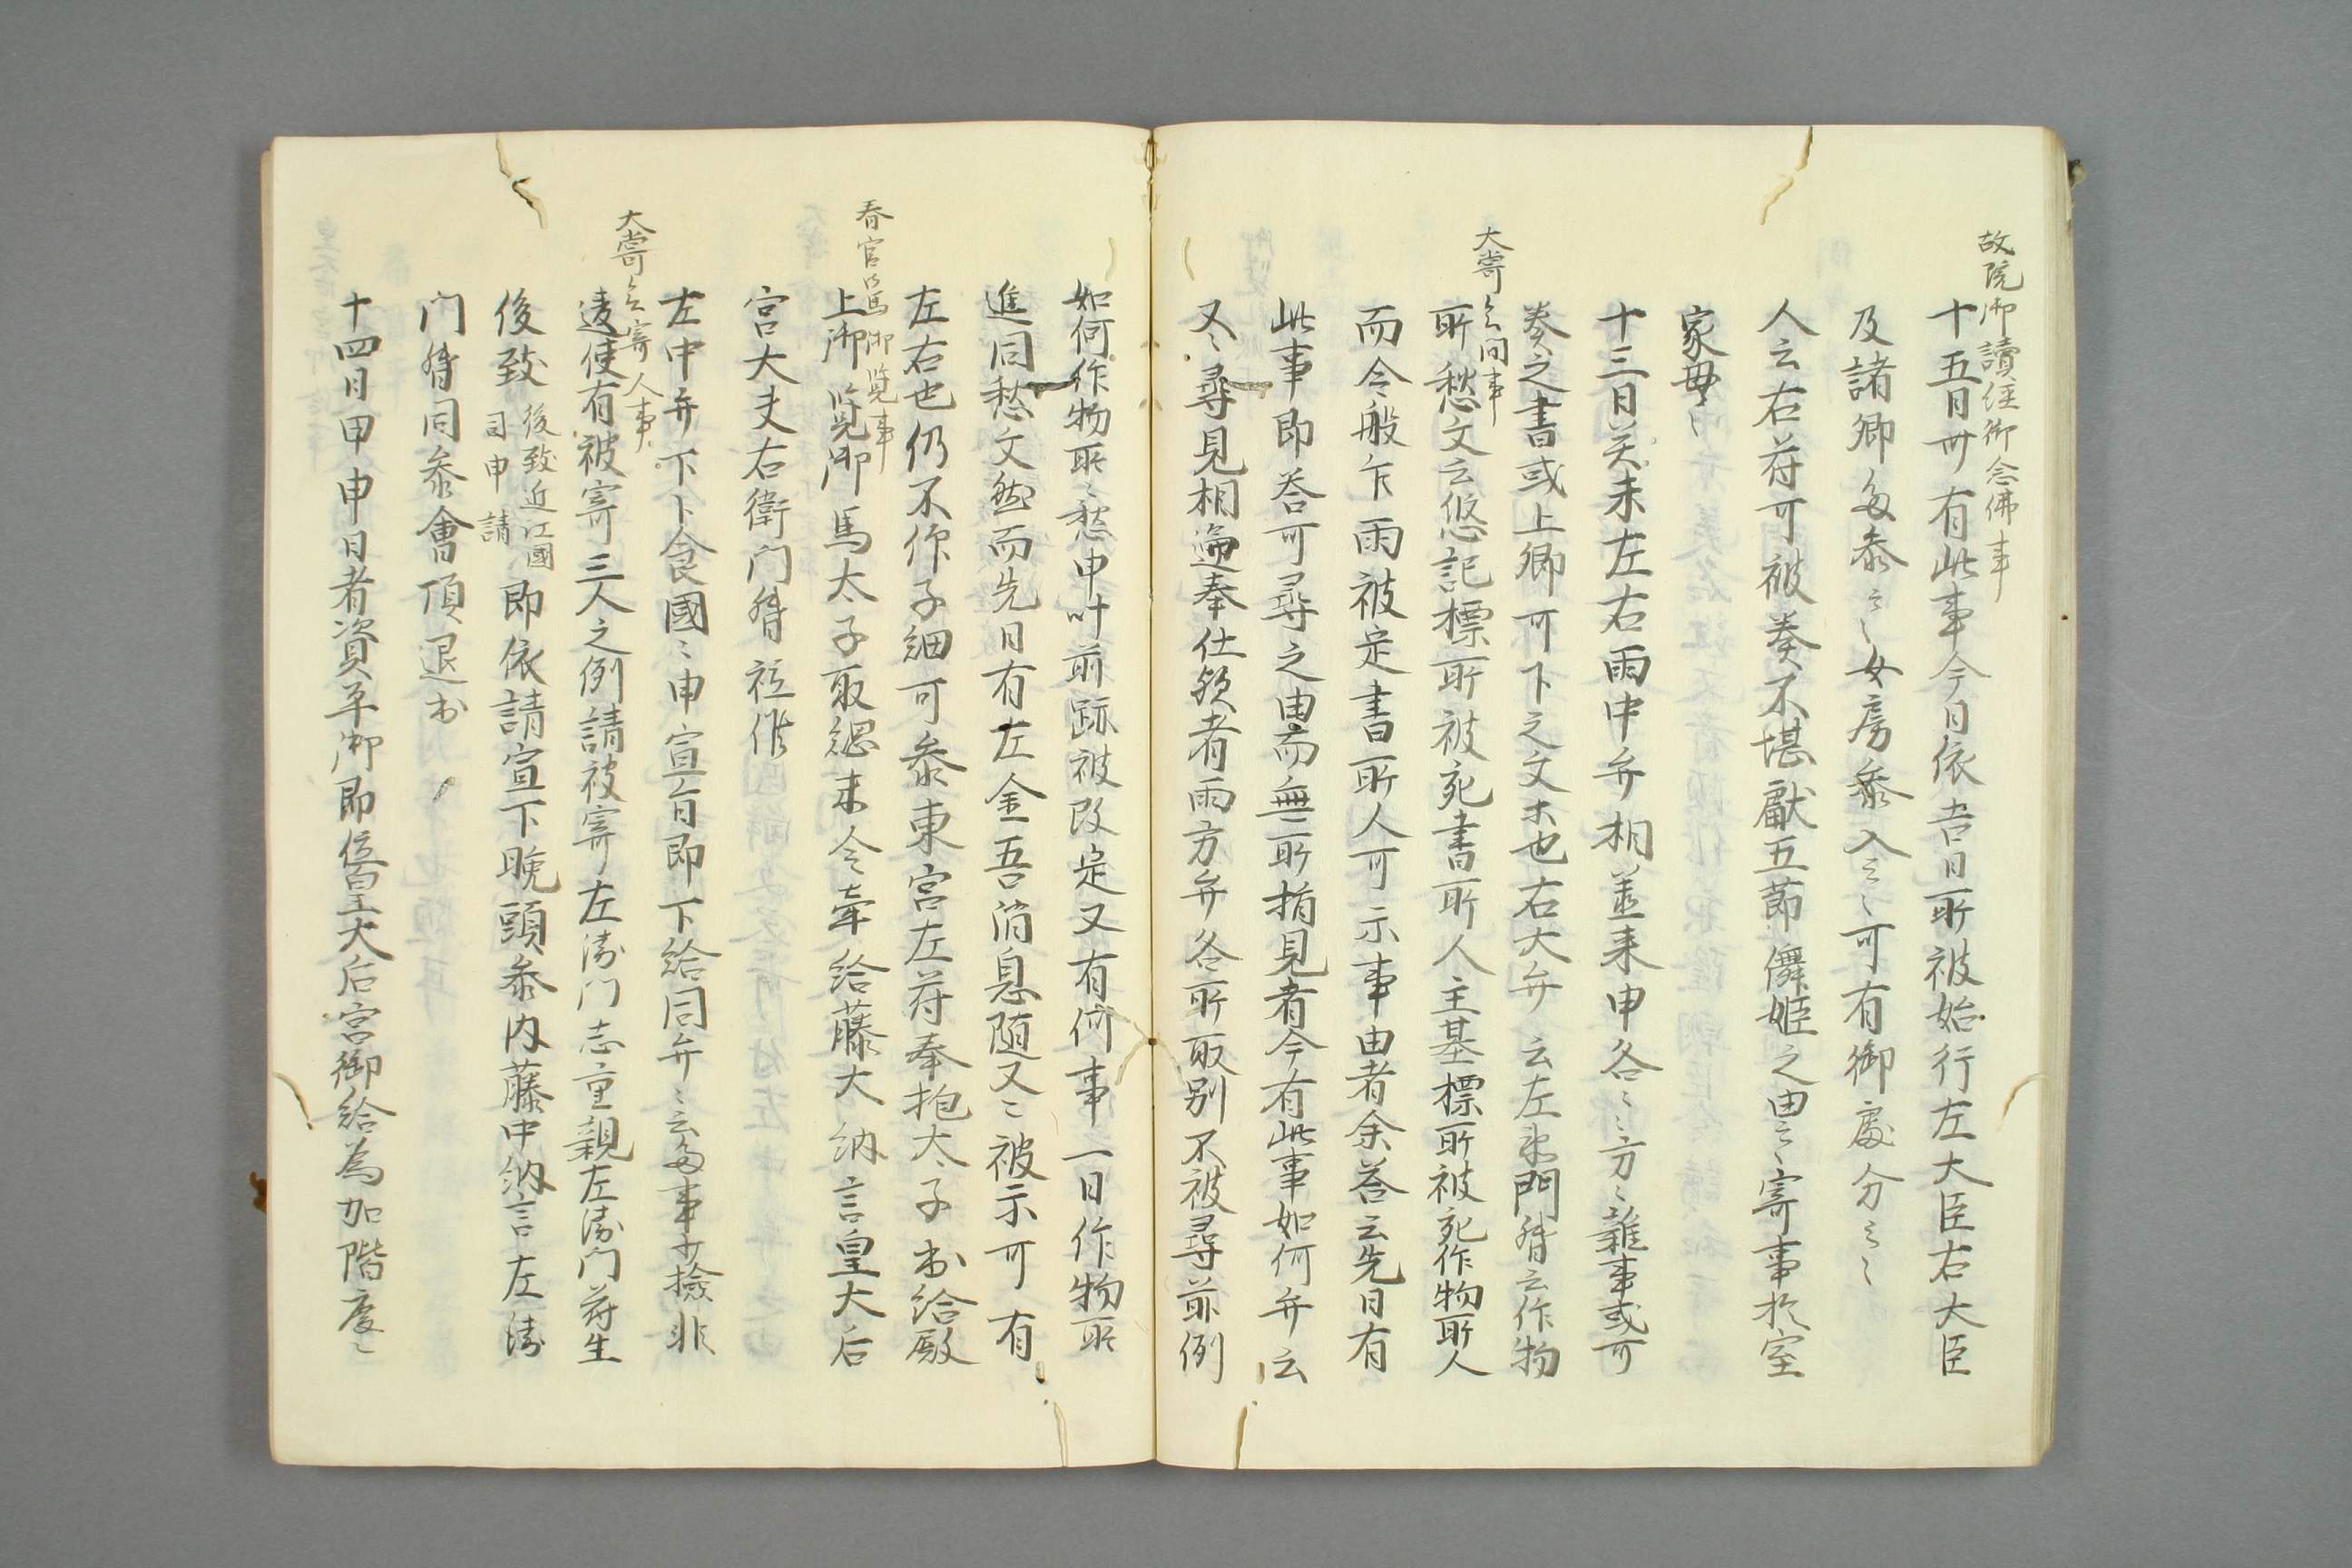 故院御讀經御念佛事
十五日卅有此事今日依吉日所被始行左大臣右大臣
及諸卿多參云々女房參入云々可有御處分云々
人云右府可被奏不堪獻五節儛姫之由云々寄事於室
家母々
十三日癸未左右兩中弁相並来申各々方々雜事或可
奏之書或上卿可下之文未也右大弁云左衛門督云作物
大嘗会間事
所愁文云悠記標所被充書所人主基標所被充作物所人
而今般乍兩被定書所人可示事由者余答云先日有
此事即答可尋之由而無所指見者今有此事如何弁云
又々尋見相逈奉仕欤者兩方弁各所取別不被尋前例
如何作物所々愁申叶前跡被改定又有何事一日作物所
進同愁文然而先日有左金吾消息随又々被示可有
左右也仍不作子細可參東宮左府奉抱太子出給殿
春宮御馬御覧事
上御覧御馬太子取綱末令牽給藤大納言皇大后
宮大夫右衛門督祗候
左中弁下卜食國々申宣旨即下給同弁々云多事少撿非
大嘗会寄人事
違使有被寄三人之例請被寄左衛門志重親左衛門府生
後致 後致近江國司申請 即依請宣下晩頭參内藤中納言左衛
门督同參會頂退出
十四日甲申日者資平御即位皇大后宮御給為加階慶々